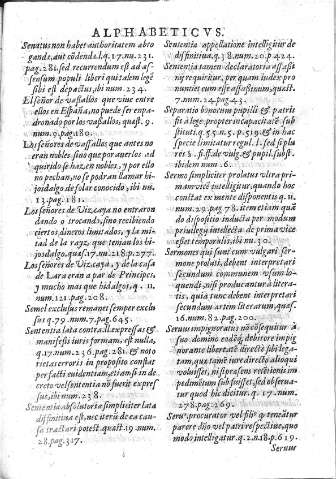 ALPHABETICVS.
Senatus non habet authoritatem abro
gande, aut cōdende.l.q.17.nu.231.
pag.281. sed recurrendum est ad as-
sensum populi liberi qui talem legē
sibi est depactus, ibi num.234.
El señor de vasallos que viue entre
ellos en España, no puede ser empa-
dronado por los vasallos, quæst.9.
num.9.pag.180.
Los señores de vasallos que antes no
eran nobles sino que por auerlos ad
quirido se hazen nobles, y por ello
no pechan, no se podran llamar hi-
josdalgo de solar conocido, ibi nu.
13.pag.181.
Los señores de Vizcaya no entraron
dando o trocando, sino recibiendo
ciertos dineros limitados, y la mi-
tad de la raya, que tenian los hi-
josdalgo, quæst.17.nu.218.p.277.
Los señores de Vizcaya, y de la casa
de Lara eran a par de Principes,
y mucho mas que hidalgos, q.11,
num.121.pag.208.
Semel exclusus remanet semper exclu
sus q.79.num.7.pag.645.
Sententia lata contra ll. expressas &
manifesti iuris formam, est nulla,
q.17.num.236.pag.281. & noto
rietas erroris in proposito constat
per facti euidentiam, etiam si in de
creto vel sententia nō fuerit expres
sus, ibi num.238.
Sententia absolutoria simpliciter lata
diffinitiua est, nec iterū de ea cau-
sa tractari potest. quæst.19.num.
28.pag.317.
Sententia appellatione intelligitur de
diffinitiua, q.38.num.20.p.424.
Sententia tamen declaratoria assasi-
nij requiritur, per quam iudex pro
nuntiet eum esse assassinum, quæst.
7.num.24.pag.43.
Separatio bonorum pupilli & patris
fit à lege, propter incapacitatē sub
stituti. q.55.n.5.p.519. & in hac
specie limitatur regul. l. sed si plu
res §. ff. de vulg. & pupil. subst.
ibidem num.6.
Sermo simpliciter prolatus vltra pri-
mam vicē intelligitur, quando hoc
constat ex mente disponentis q.11.
num.29.pag.78. item etiam quan
do dispositio inducta per modum
priuilegij intellecta de prima vice
esset inutilis, ibi nu.30.
Sermones nisi sint cum vulgari ser-
mone prolati, debent interpretari
secundum communem vsum lo-
quendi, nisi producantur à litera-
tis, quia tunc debent interpretari
secundum artem literarum, quæst.
16.num.82.pag.200.
Seruus impignoratus nō cōsequitur à
suo domino eodēq́; debitore impig
norante libertatē directo sibi lega-
tam, quā tamē iure directo, alioqui
voluisset, nisi præsens rechionis im
pedimētum subfuisset, sed obserua-
tur quod hic dicitur. q.17.num.
278.pag.269.
Seru9. procurator vel fili9 q̄ tenētur
parere dn̄o vel patri respectiue, quo
modo intelligatur. q.2.n.18.p.619.
Seruus